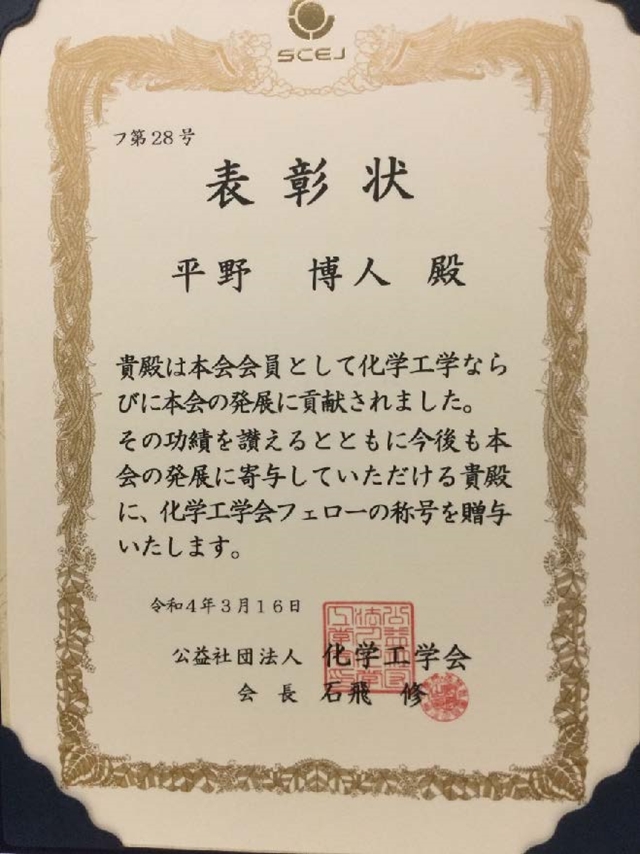 SCEJ
フ第28号
表彰状
平野 博人 殿
貴殿は本会会員として化学工学なら
びに本会の発展に貢献されました。
その功績を讃えるとともに今後も本
会の発展に寄与していただける貴殿
に、化学工学会フェローの称号を贈与
いたします。
令和4年3月16日
公益社団法人 化学工学会
会長 石飛 修